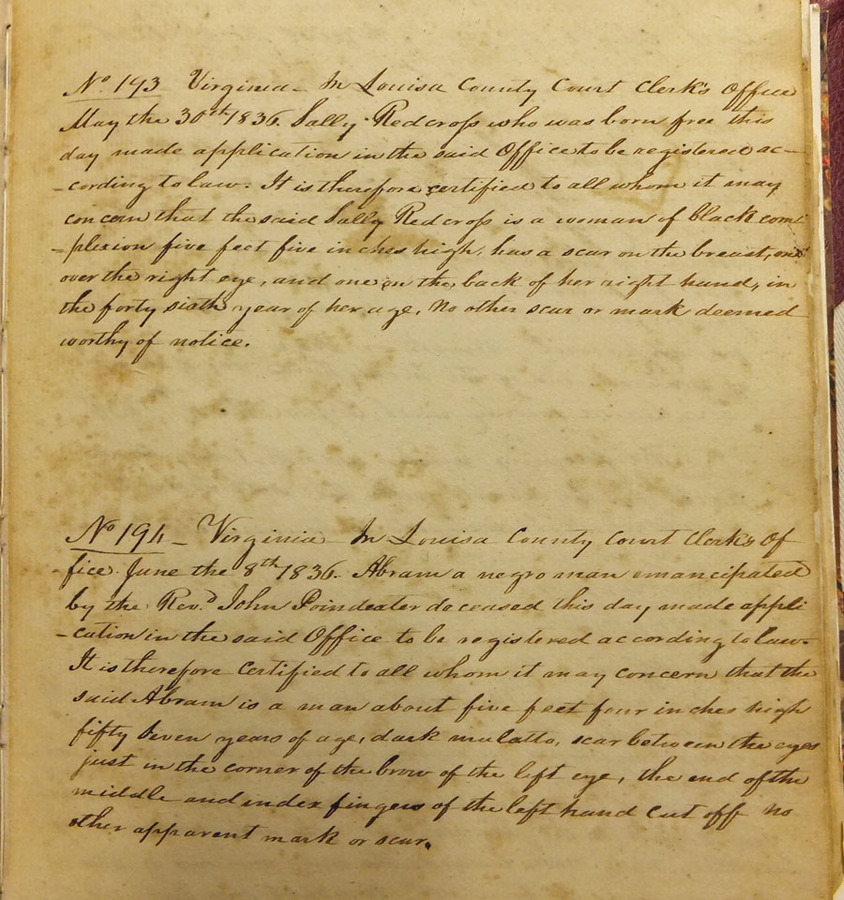 No 193 Virginia - In Louisa County Court Clerk's Office
May the 30th 1836. Sally Redcross who was born free this
day made application in the said Office to be registered ac-
-cording to law. It is therefore certified to all whom it may
concern that the said Sally Redcross is a woman of black com-
-plexion five feet five inches high, has a scar on the breast, one
over the right eye, and one on the back of her right hand, in
the forty sixth year of her age, No other scar or mark deemed
worthy of notice.
No 194 - Virginia In Louisa County Court Clerk's Of
-fice June the 8th 1836. Abram a negro man emancipated
by the Rev.d John Poindexter deceased this day made appli
-cation in the said Office to be registered according to law-
It is therefore Certified to all whom it may concern that the
said Abram is a man about five feet four inches high
fifty seven years of age, dark mulatto, scar between the eyes
just in the corner of the brow of the left eye, the end of the
middle and index fingers of the left hand cut off no
other apparent mark or scar.